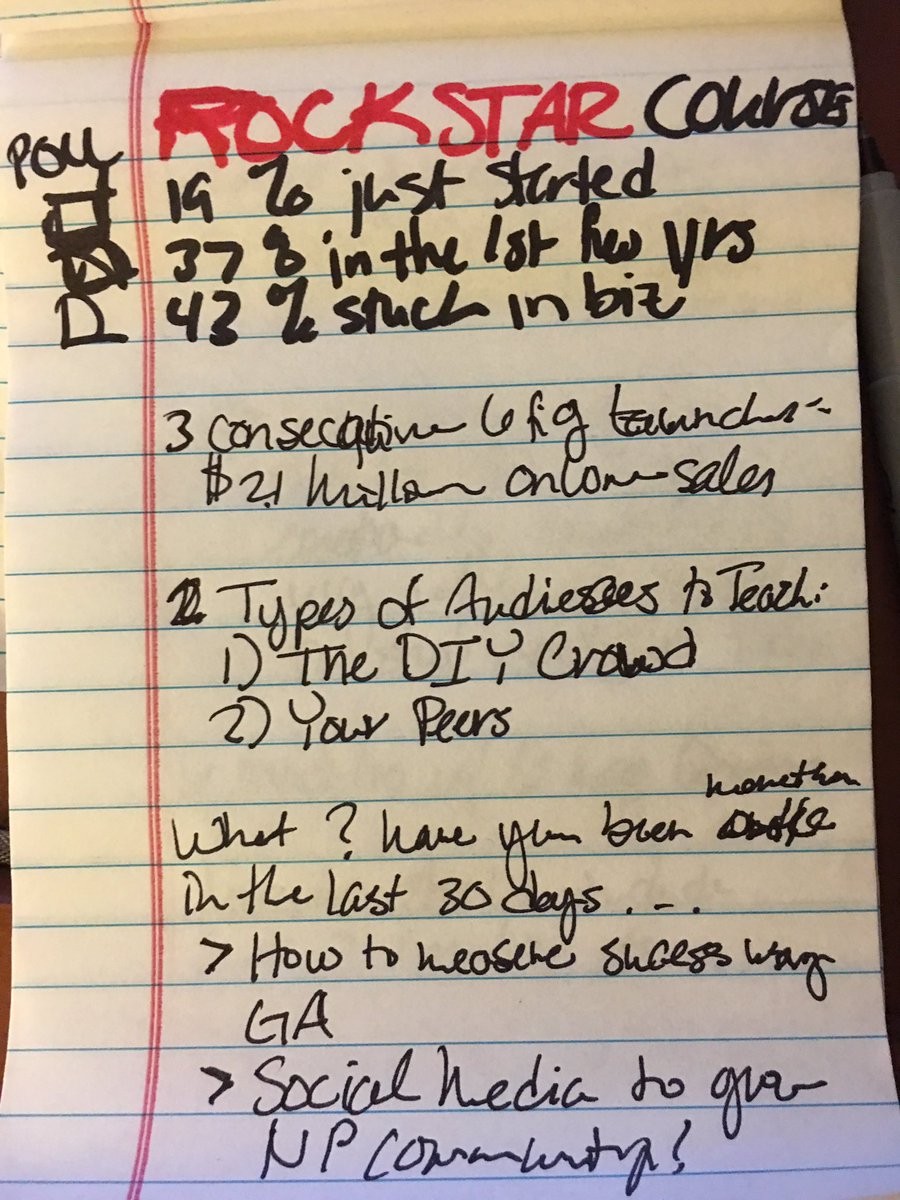 ROCKSTAR Courses
POLL
19 % just started
37 % in the 1st few yrs
43 % stuck in biz
3 consecutive 6 fig launches
$2.1 million online sales
2 Types of Audiences to Teach:
1) The DIY Crowd
2) Your Peers
more than
What ? have you been
in the last 30 days . . . .
> How to measure sucess using
GA
> Social Media to grow
NP Community?